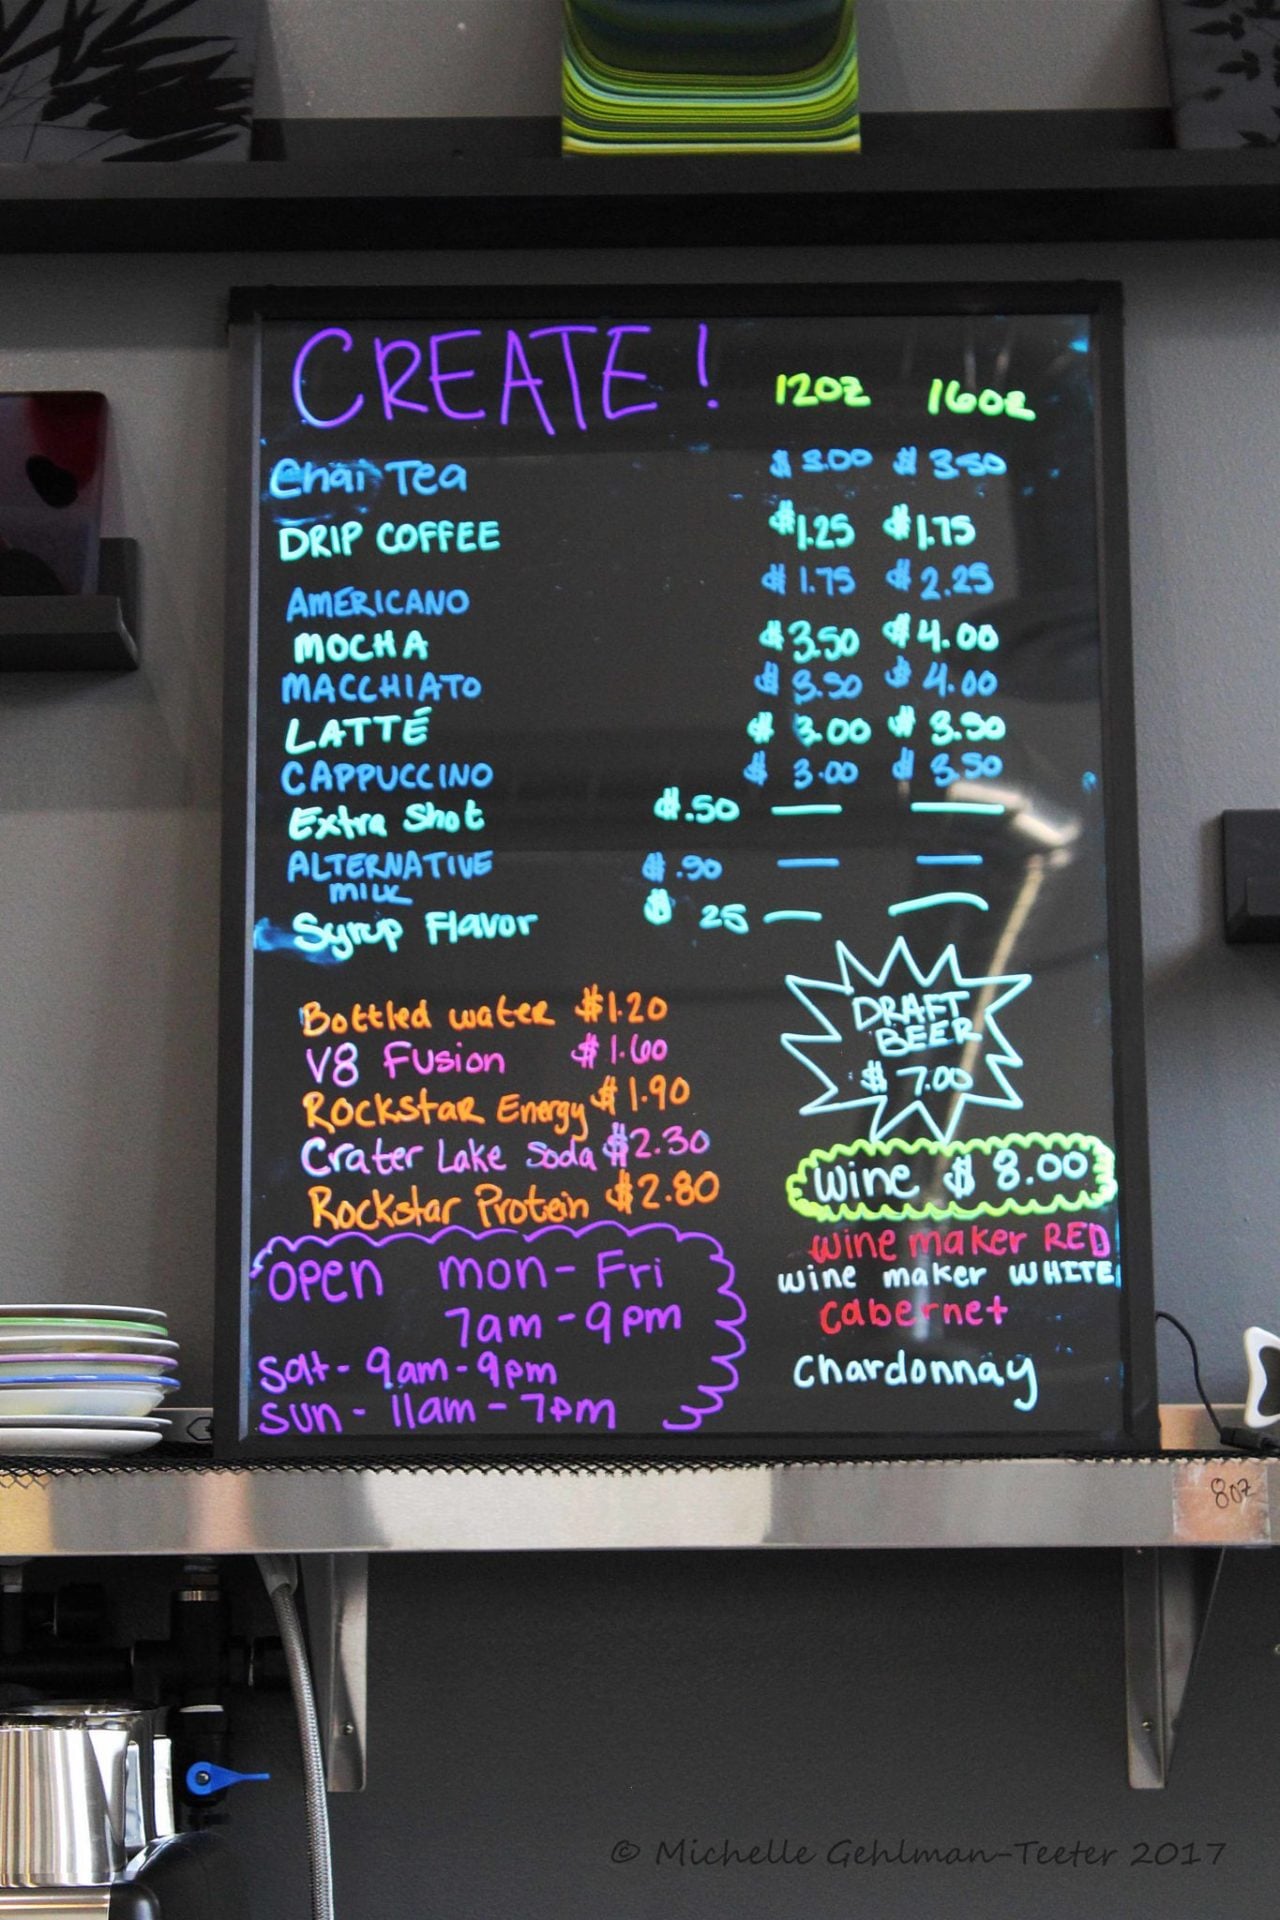 CREATE! 12oz 16oz
Chai Tea $3.00 $3.50
DRIP COFFEE $1.25 $1.75
AMERICANO $1.75 $2.25
MOCHA $3.50 $4.00
MACCHIATO $3.50 $4.00
LATTÉ $3.00 $3.50
CAPPUCCINO $3.00 $3.50
Extra Shot $.50 — —
ALTERNATIVE $.90 — —
MILK
Syrup Flavor $ 25 — —
Bottled water $1.20
V8 Fusion $1.60
Rockstar Energy $1.90
Crater Lake Soda $2.30
Rockstar Protein $2.80
OPEN mon-Fri
7am-9pm
sat-9am-9pm
sun-11am-7pm
DRAFT
BEER
$7.00
Wine $8.00
wine maker RED
wine maker WHITE
cabernet
chardonnay
8oz
© Michelle Gehlman-Teeter 2017